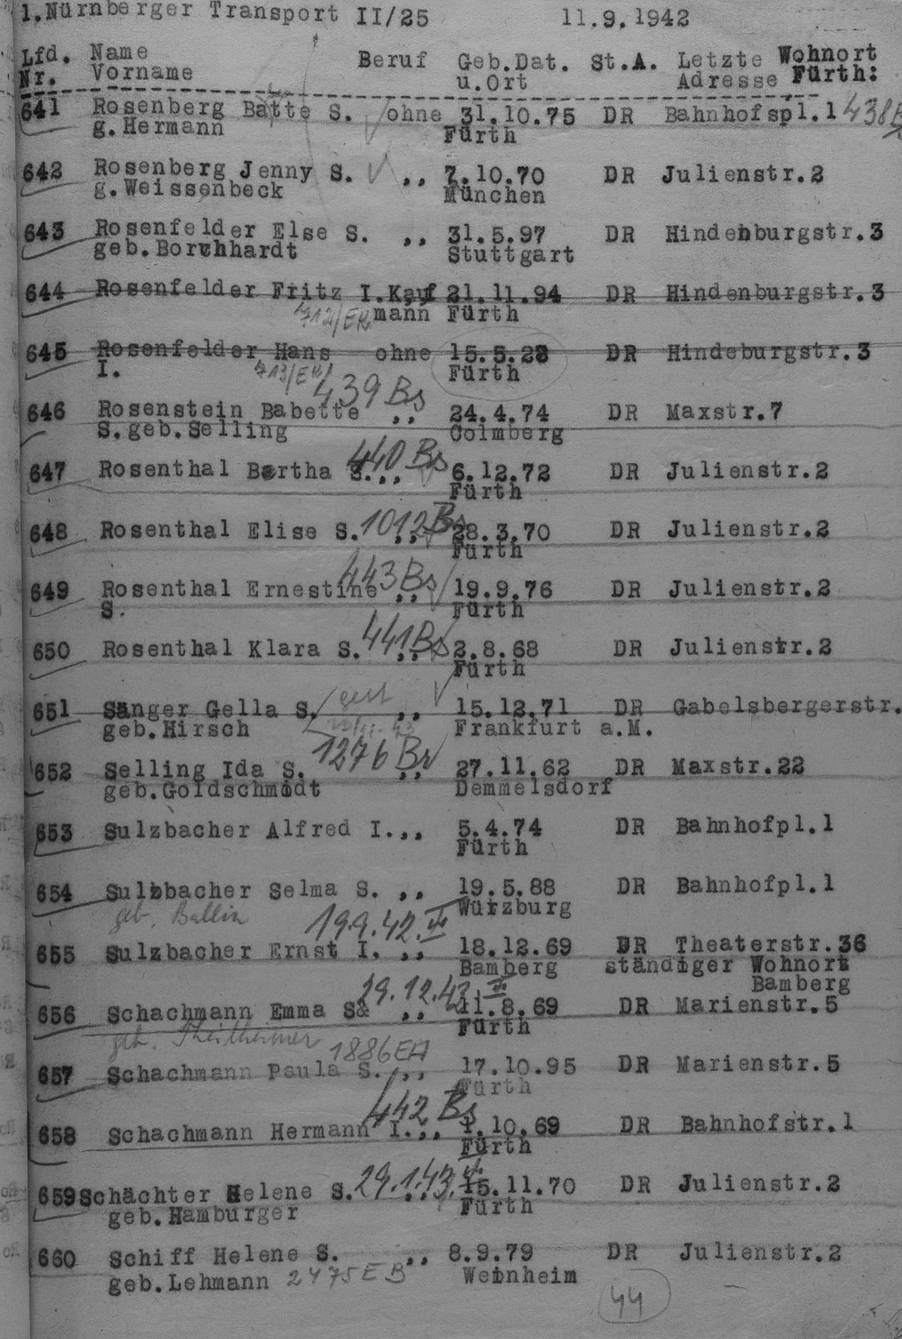 1.Nürnberger Transport II/25 11.9.1942
Lfd. Name Beruf Geb.Dat. St.A. Letzte Wohnort
Nr. Vorname u.Ort Adresse Fürth:
641 Rosenberg Batte S. ohne 31.10.75 DR Bahnhofspl.1 438
g.Hermann Fürth
642 Rosenberg Jenny S. ,, 7.10.70 DR Julienstr.2
g.Weissenbeck München
643 Rosenfelder Else S. ,, 31.5.97 DR Hindenburgstr.3
geb.Borchhardt Stuttgart
644 Rosenfelder Fritz I.Kauf 21.11.94 DR Hindenburgstr.3
712/EK mann Fürth
645 Rosenfelder Hans ohne 15.5.23 DR Hindeburgstr.3
I. 713/EK Fürth
439 Bs
646 Rosenstein Babette ,, 24.4.74 DR Maxstr.7
S.geb.Selling Colmberg
647 Rosenthal Bertha S. 440 Bs ,, 6.12.72 DR Julienstr.2
Fürth
648 Rosenthal Elise S. 1012 Bs ,, 28.3.70 DR Julienstr.2
Fürth
649 Rosenthal Ernestine 443 Bs ,, 19.9.76 DR Julienstr.2
S. Fürth
650 Rosenthal Klara S. 441 Bs ,, 2.8.68 DR Julienstr.2
Fürth
651 Sänger Gella S. gest ,, 15.12.71 DR Gabelsbergerstr.
geb.Hirsch Frankfurt a.M.
652 Selling Ida S. 1276 Br ,, 27.11.62 DR Maxstr.22
geb.Goldschmidt Demmelsdorf
653 Sulzbacher Alfred I.,, 5.4.74 DR Bahnhofpl.1
Fürth
654 Sulzbacher Selma S. ,, 19.5.88 DR Bahnhofpl.1
geb. Ballin Würzburg
19.9.42 VI
655 Sulzbacher Ernst I. ,, 18.12.69 DR Theaterstr.36
Bamberg ständiger Wohnort
Bamberg
29.12.42
656 Schachmann Emma S ,, 11.8.69 DR Marienstr.5
geb. Theilheimer Fürth
1886 EA
657 Schachmann Paula S. ,, 17.10.95 DR Marienstr.5
Fürth
442 Bs
658 Schachmann Hermann I.,, 1.10.69 DR Bahnhofstr.1
Fürth
659 Schächter Helene S. 29.1.43. ,, 15.11.70 DR Julienstr.2
geb.Hamburger Fürth
660 Schiff Helene S. ,, 8.9.79 DR Julienstr.2
geb.Lehmann 2475 EB Weinheim
44